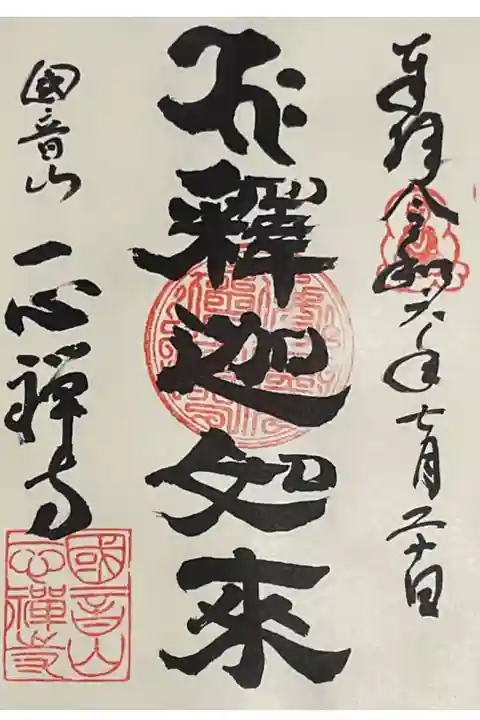 奉拝 令和六年七月二十日
釋迦如來
國音山
一心禅寺
國音山
一心禪寺